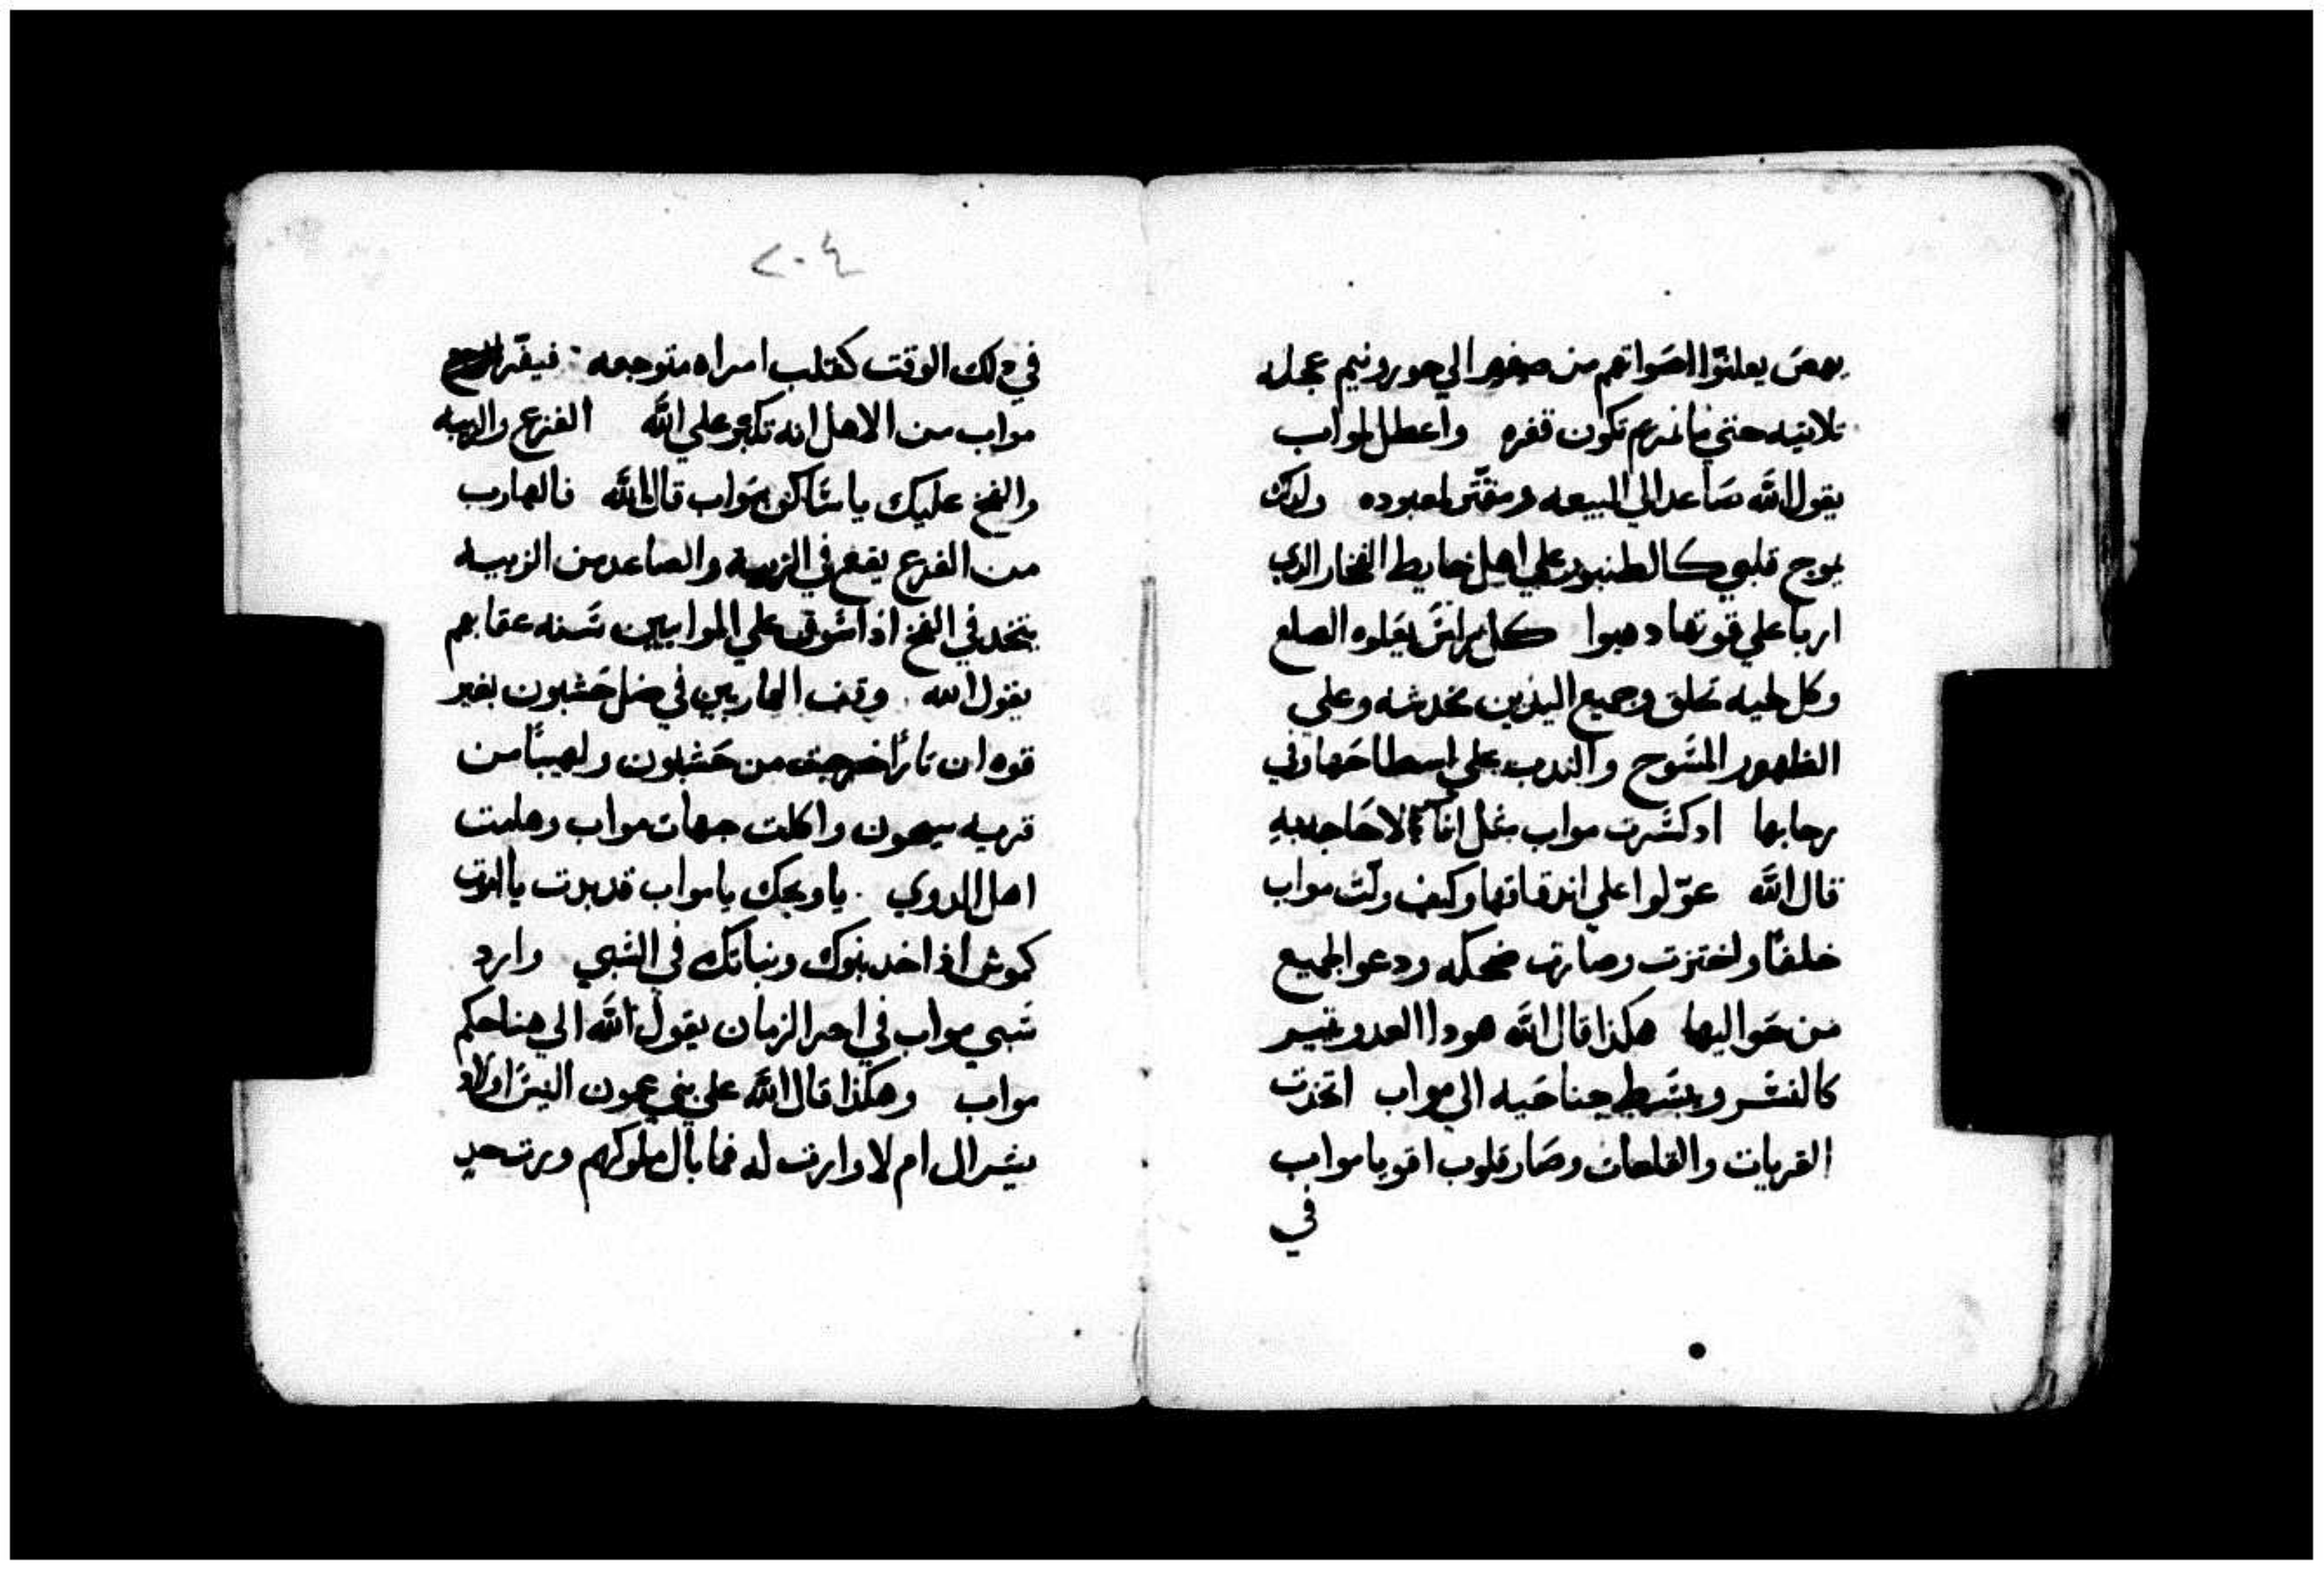 يهص يعلنوا اصواتهم من صغير الي حورونيم عجله
تلاتيه حتي ما نمريم تكون قفره واعطل لمواب
يقول الله صاعد الي البيعه ومقتر لمعبوده ولدلك
يموج قلبي كالطنبور علي اهل حايط الفخار الدي
اربا علي قوتها دهبوا كل براس يعلوه الصلع
وكل لحيه تحلق وجميع اليدين مخدشه وعلي
الظهور المسوح والندب علي اسطاحها وفي
رحابها اد كسرت مواب مثل انا لا حاجه به
قال الله عوّلوا علي اندقاقها وكيف ولّت مواب
خلفًا واختزت وصارت ضحكه ودعوا الجميع
من حواليها هكذا قال الله هودا العدو يتيسر
كالنسر ويبسط جناحيه الي مواب اتخذت
القريات والقلعات وصار قلوب اقويا مواب
في
٢٠٤
في دلك الوقت كقلب امراه متوجعه فيقر
مواب من الاهل انه تكبر علي الله الفزع والزبيه
والفخ عليك يا ساكن مواب قال الله فالهارب
من الفزع يقع في الزبيه والصاعد من الزبيه
يتخد في الفخ اذا سوق علي الموابيين سنه عقابهم
يقول الله وقف الهاربين في ضل حشبون بغير
قوه ان نارًا خرجت من حشبون ولهيبًا من
قريه سيحون واكلت جهات مواب وهامت
اهل الدوي يا ويحك يا مواب قد بدت يا امت
كموش اذ اخد بنوك وبناتك في السبي وارد
سبي مواب في اخر الزمان يقول الله الي هنا حكم
مواب وهكذا قال الله علي بني عمون اليس اولاد
يسرال ام لا وارت له فما بال ملوكهم ورت حد